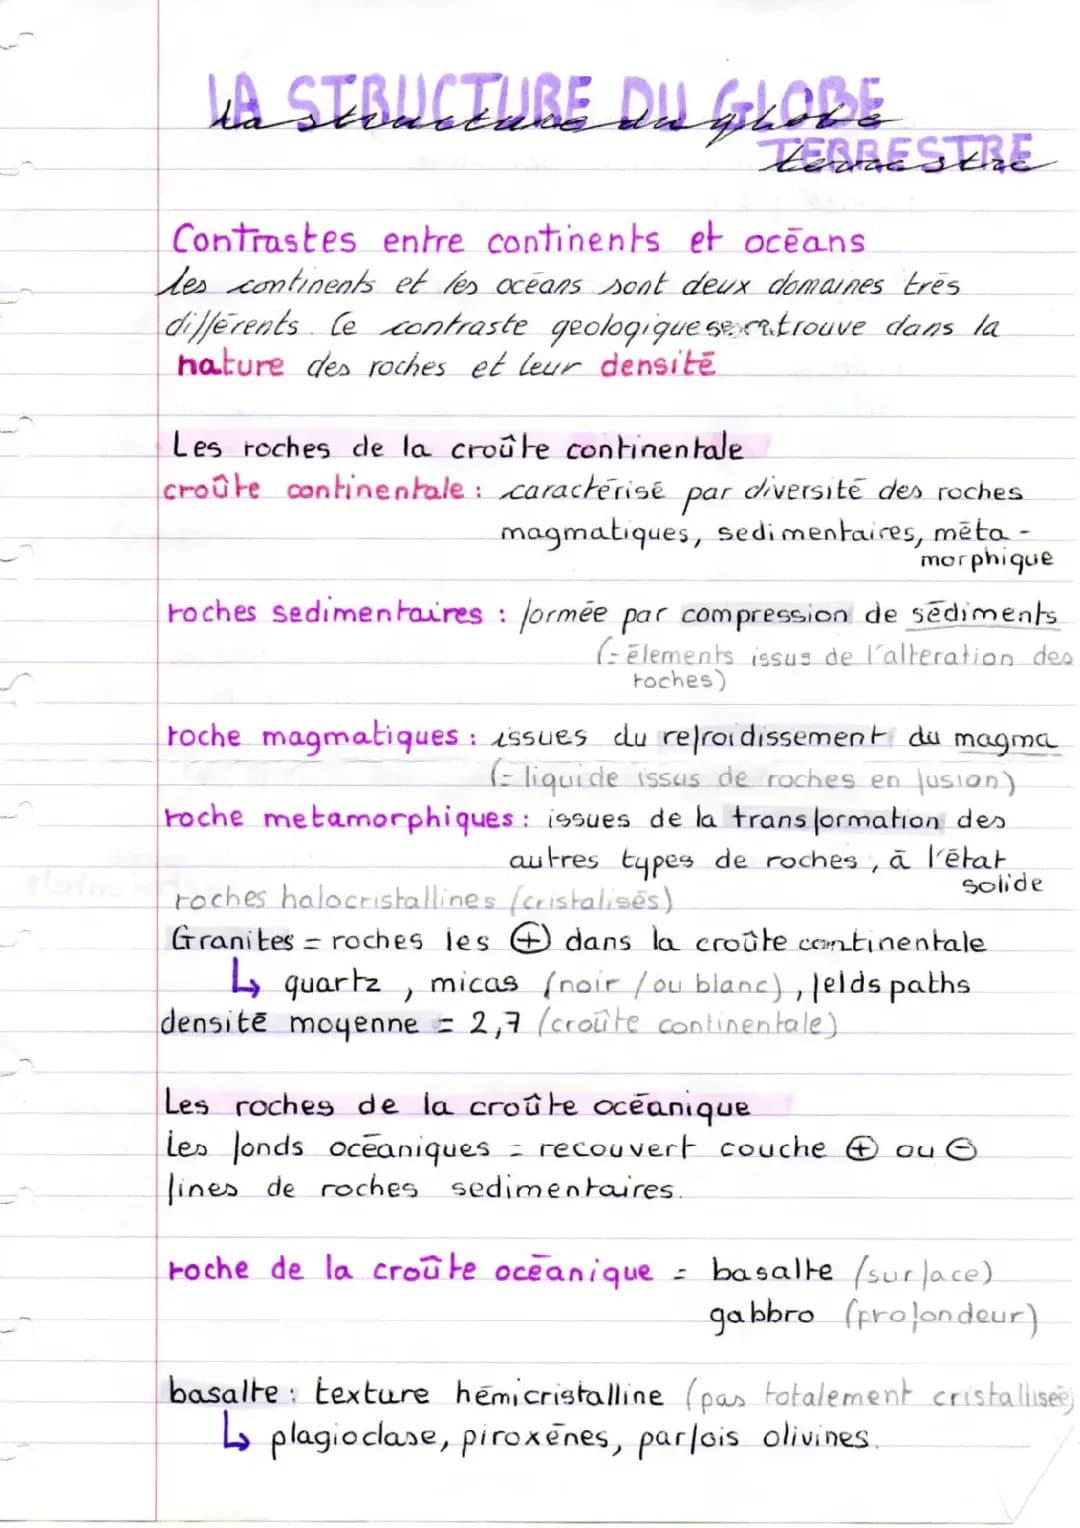 LA STRUCTURE DU GLOBE
La structure du globe
TERRESTRE
terrestre
Contrastes entre continents et océans
les continents et les océans sont deux domaines très
différents. Ce contraste geologique se retrouve dans la
nature des roches et leur densité
Les roches de la croûte continentale
croûte continentale : caractérisé par diversité des roches
magmatiques, sedimentaires, méta-
morphique
roches sedimentaires : formée par compression de sédiments
(= élements issus de l'alteration des
roches)
roche magmatiques : issues du refroidissement du magma
(= liquide issus de roches en fusion)
roche metamorphiques : issues de la transformation des
autres types de roches, à l'état
solide
roches halocristallines (cristalisés)
Granites = roches les ⊕ dans la croûte continentale
↳ quartz, micas (noir / ou blanc), felds paths
densité moyenne = 2,7 (croûte continentale)
Les roches de la croûte océanique
les fonds océaniques = recouvert couche ⊕ ou ⊖
fines de roches sedimentaires.
roche de la croûte océanique = basalte (surface)
gabbro (profondeur)
basalte : texture hémicristalline (pas totalement cristallisée)
↳ plagioclase, piroxènes, parfois olivines.